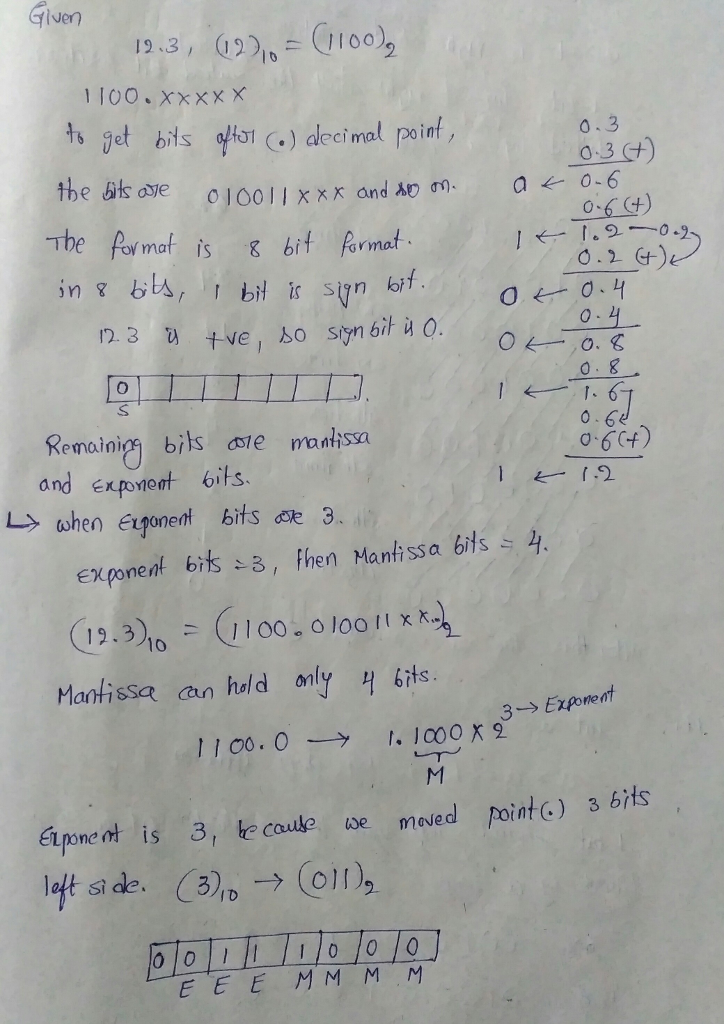 Given
12.3, (12)10 = (1100)2
1100.xxxxx
to get bits after (.) decimal point,
the bits are 010011xxx and so on.
The format is 8 bit format.
in 8 bits, 1 bit is sign bit.
12.3 is +ve, so sign bit is 0.
0
S
Remaining bits are mantissa
and Exponent bits.
0.3
0.3 (+)
0 ← 0.6
0.6 (+)
1 ← 1.2 — 0.2
0.2 (+)
0 ← 0.4
0.4
0 ← 0.8
0.8
1 ← 1.6
0.6
0.6 (+)
1 ← 1.2
↳ when Exponent bits are 3.
Exponent bits = 3, then Mantissa bits = 4.
(12.3)10 = (1100.010011xx..)2
Mantissa can hold only 4 bits.
1100.0 → 1.1000 x 2^3 → Exponent
M
Exponent is 3, because we moved point (.) 3 bits
left side. (3)10 → (011)2
0 0 1 1 1 0 0 0
E E E M M M M